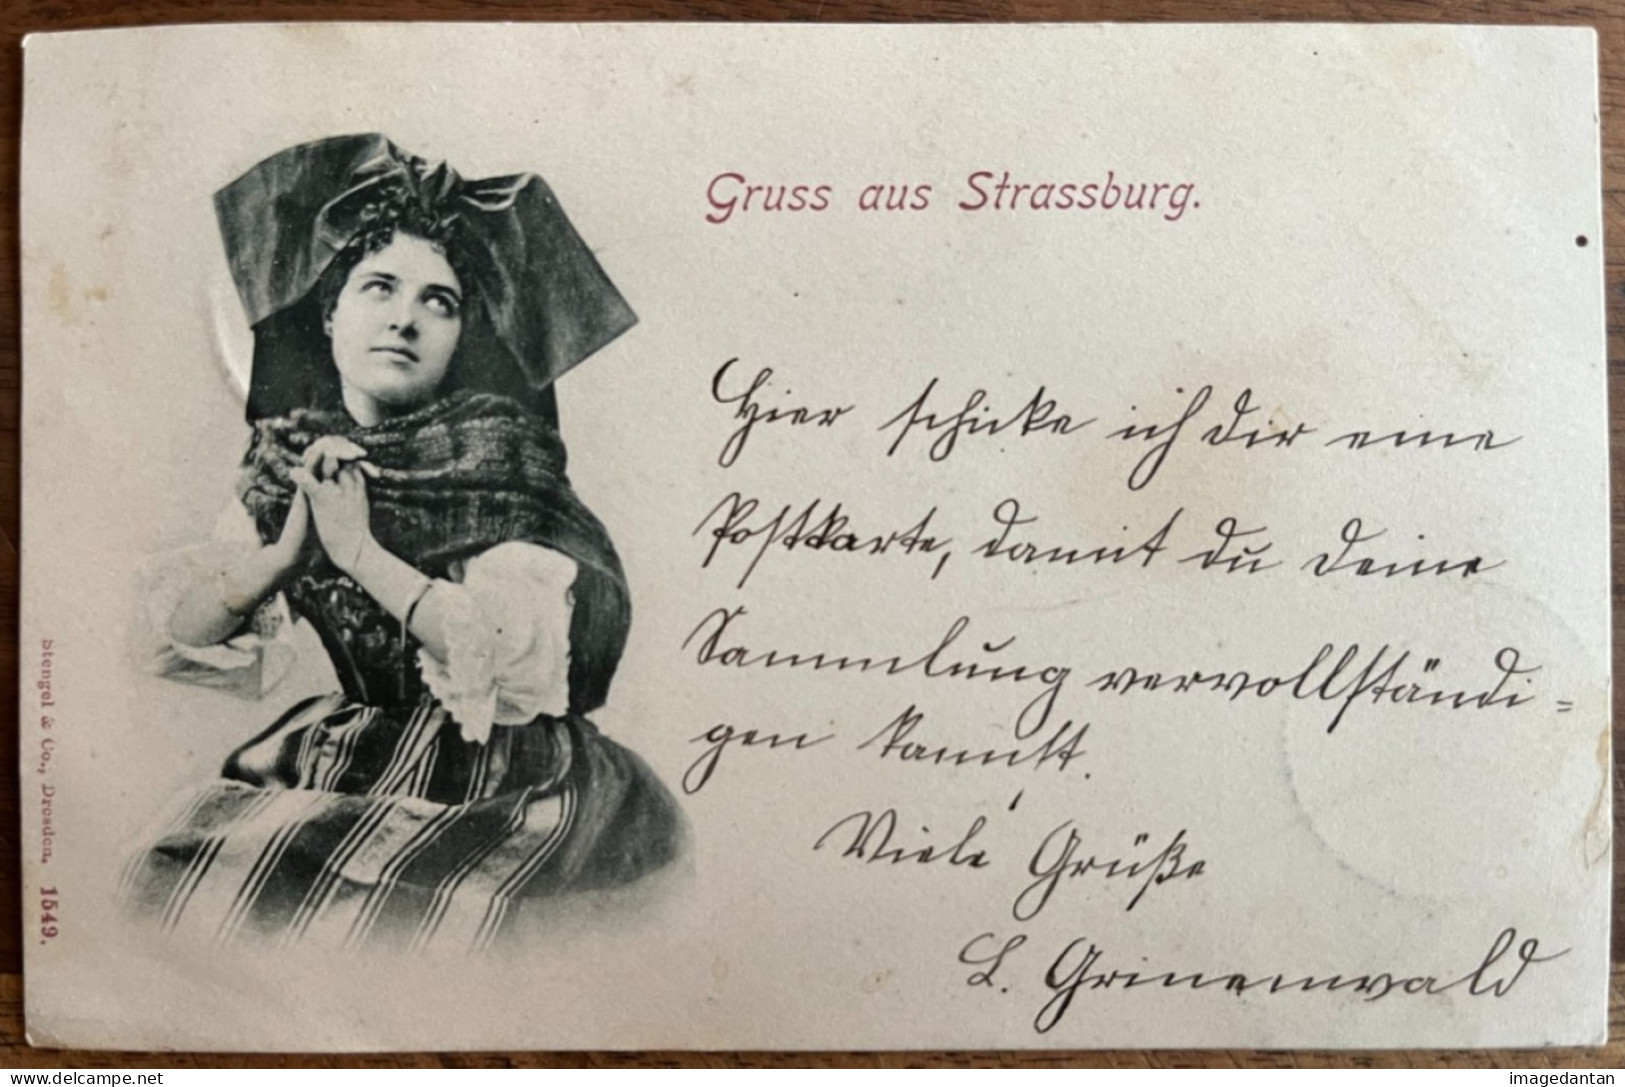 Gruss aus Strassburg.
Hier schicke ich dir eine
Postkarte, damit du deine
Sammlung vervollständi=
gen kannst.
Viele Grüße
L. Grinenwald
Stengel & Co., Dresden. 1549.
www.delcampe.net
imagedantan